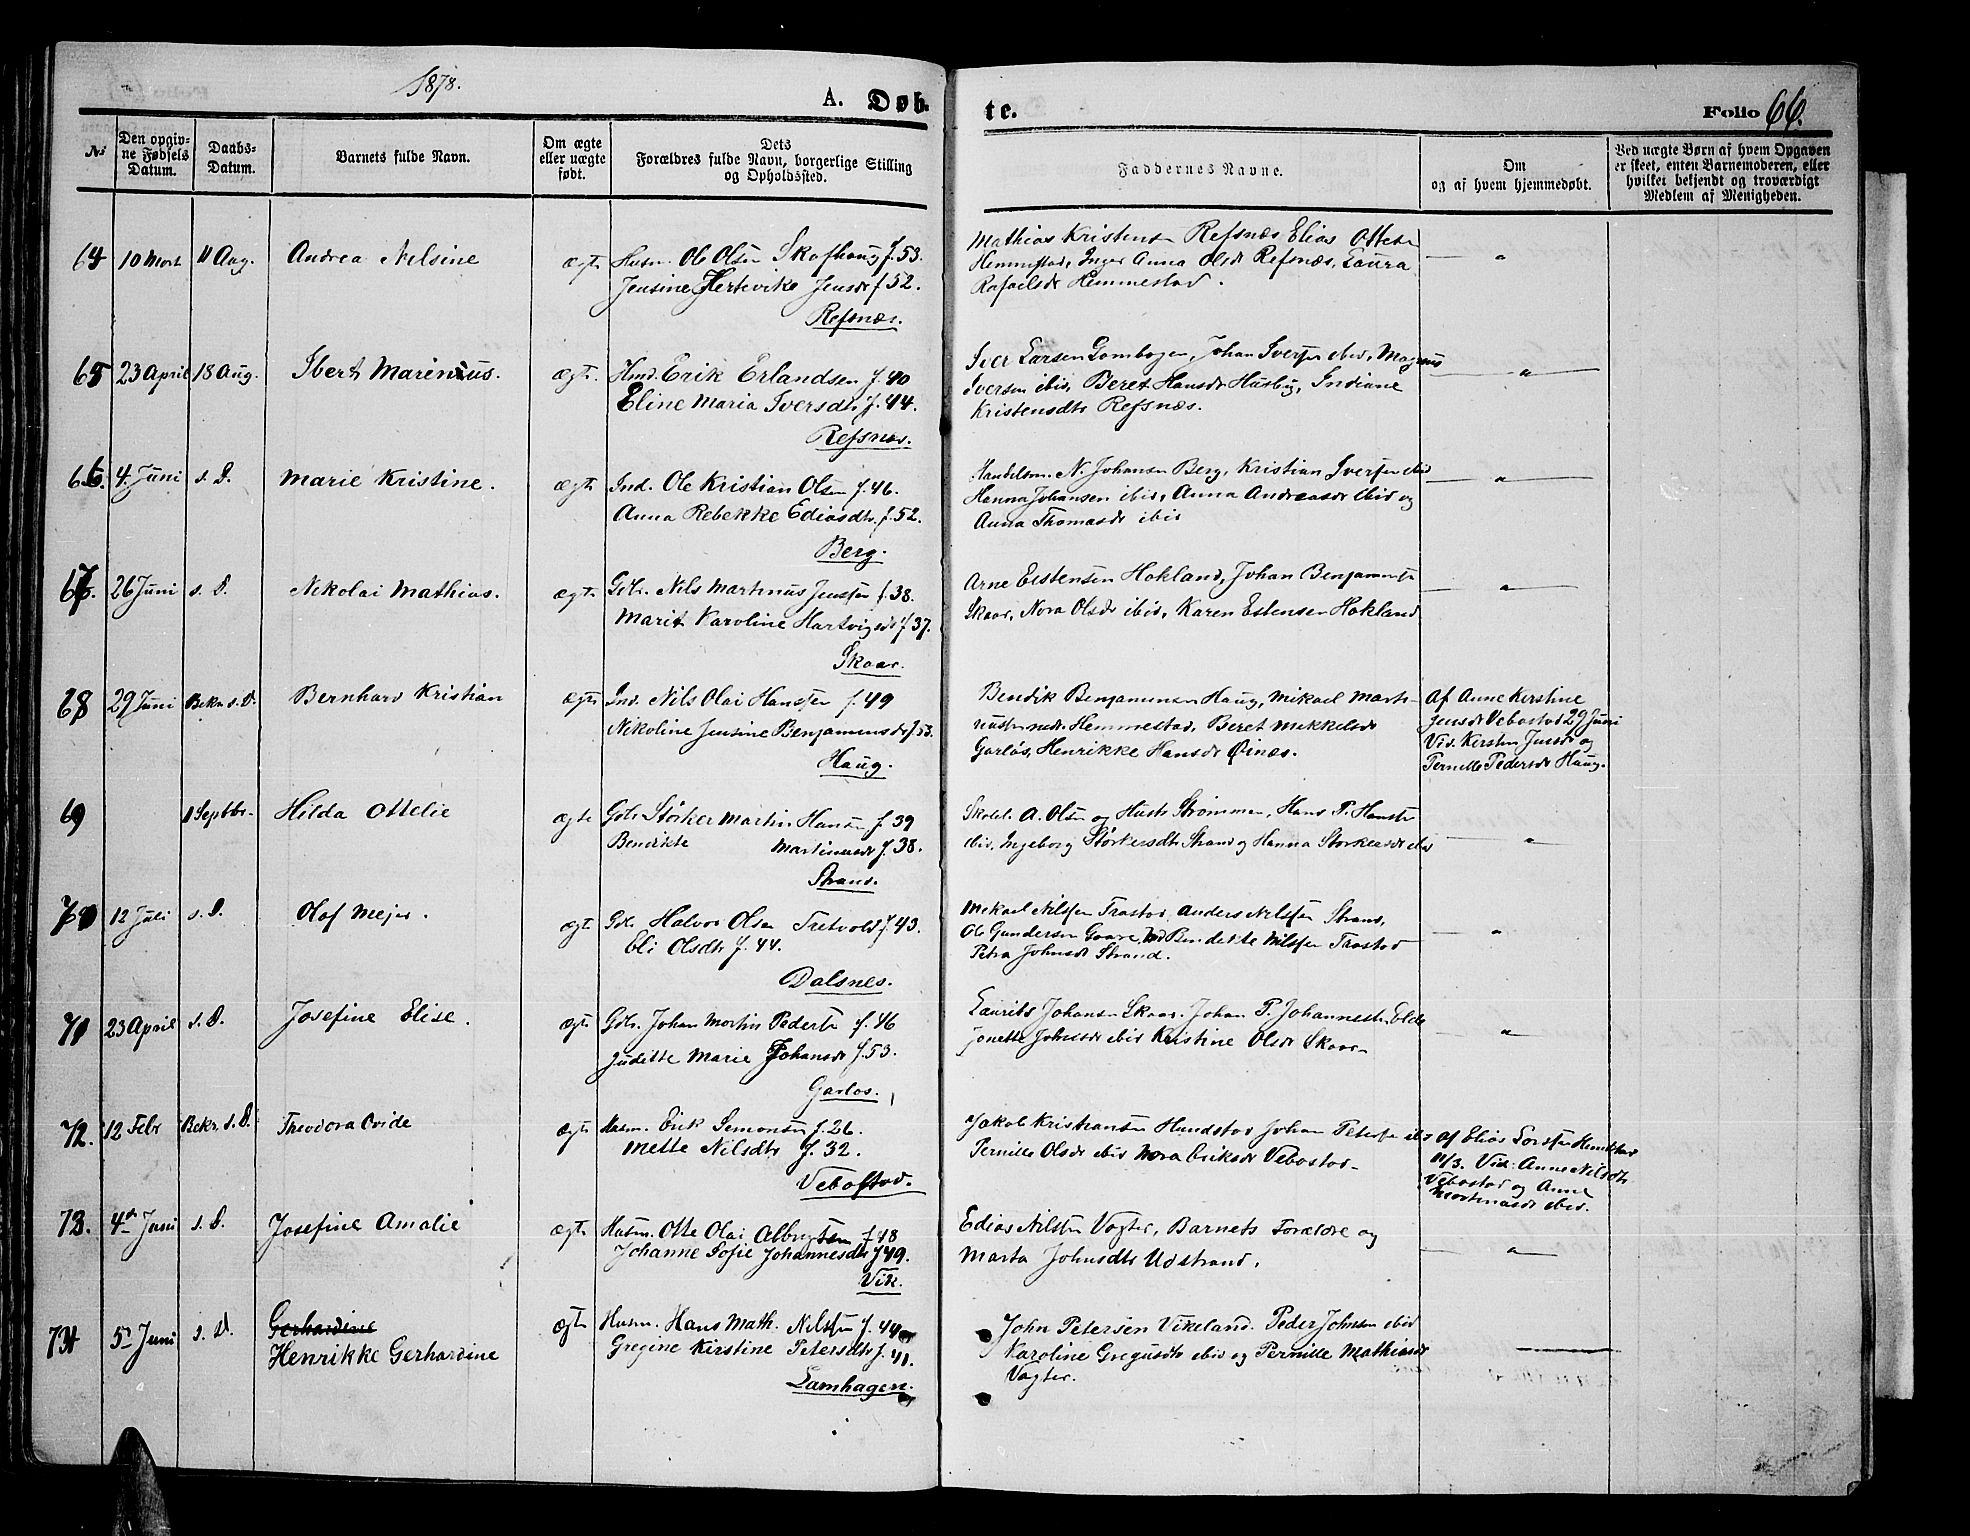 1878.
A. Døb-
te.
Folio 66.
№
Den opgivne Fødsels Datum.
Daabs-Datum.
Barnets fulde Navn.
Om ægte eller uægte født.
Dets Forældres fulde Navn, borgerlige Stilling og Opholdssted.
Faddernes Navne.
Om og af hvem hjemmedøbt.
Ved uægte Børn af hvem Opgaven er skeet, enten Barnemoderen, eller hvilket bekjendt og troværdigt Medlem af Menigheden.
64 10 Mart 11 Aug. Andrea Nilsine ægte Husm. Ole Olsen Skafhaug f. 53.
Jensine Hertevike Jensdr f 52.
Refsnæs.
Mathias Kristensen Refsnæs, Elias Ottesen
Hemmestad, Inger Anna Olsdr Refsnæs, Laura
Rafaelsdr Hemmestad.
65 23 April 18 Aug. Ibert Marenius. ægte. Hmd. Erik Erlandsen f. 40
Eline Maria Iversdtr f. 44.
Refsnæs.
Iver Larsen Gambogen, Johan Iversen ibid, Magnus
Iversen ibid, Beret Hansdr Husby, Indiane
Kristensdtr Refsnæs.
66. 4. Juni s. D. Marie Kristine. ægte Ind. Ole Kristian Olsen f. 46.
Anna Rebekke Ediasdtr. f. 52.
Berg.
Handelsm. N. Johansen Berg, Kristian Iversen ibid
Hanna Johansen ibid, Anna Andreasdr ibid og
Anna Thomasdr ibid
67. 26 Juni s. D. Nikolai Mathias. ægte Gdbr. Nils Martinus Jenssen f. 38.
Marit Karoline Hartvigsdr f. 37.
Skaar.
Arne Estensen Hokland, Johan Benjaminsen
Skaar, Nora Olsdr ibid, Karen Estensen Hokland
68 29 Juni Bekr. s. D. Bernhard Kristian ægte Ind. Nils Olai Hanssen f. 49
Nikoline Jensine Benjamensdr f. 53.
Haug.
Bendik Benjaminsen Haug, Mikael Marti-
nussen nedr Hemmestad, Beret Mikkelsdr
Garløs, Henrikke Hansdr Øinæs.
Af Anne Kerstine
Jensdr Vebostad 29 Juni
Vid. Kersten Jensdr og
Pernille Pedersdr Haug.
69 1 Septbr. Hilda Ottelie ægte Gdbr Størker Martin Hansen f. 39
Bendikte Martinusdr f. 38.
Strand.
Skolel. A. Olsen og Hustr Strømmen, Hans P. Hansen
ibid, Ingeborg Størkersdtr Strand og Hanna Størkersdr ibid
70 12 Juli s. D. Olaf Mejer. ægte Gdbr. Halvor Olsen Tretvold f. 43.
Eli Olsdtr f. 44.
Dalsnes.
Mekael Nilssen Trastad, Anders Nilssen Strand,
Ole Gundersen Gaare, Bendikte Nilssen Trastad
Petra Johnsdr Strand.
71 23 April s. D. Josefine Elise. ægte Gdbr. Johan Martin Pedersen f. 46
Juditte Marie Johansdr f. 53.
Garløs.
Laurits Johansen Skaar. Johan P. Johannessen Elde
Jonette Johnsdr ibid Kristine Olsdr Skaar
72. 12 Febr Bekr. s. D. Theodora Ovide ægte Husm. Erik Simonsen f. 26.
Mette Nilsdtr f. 32.
Vebostad.
Jakob Kristiansen Hundstad Johan Petersen ibid
Pernille Olsdr ibid Nora Eriksdr Vebostad
Af Elias Larsen Hundstad
11/3. Vid: Anne Nilsdtr
Vebostad og Anne
Mortensdr ibid.
73. 4de Juni s. D. Josefine Amalie ægte Husm. Otte Olai Albrigtsen f. 48
Johanne Sofie Johannesdr f. 49.
Vik.
Edias Nilsen Vagter, Barnets Forældre og
Marta Johnsdtr Udstrand.
74 5te Juni s. D. Gerhardine
Henrikke Gerhardine
ægte Husm. Hans Math. Nilssen f. 44
Gregine Kirstine Petersdtr f. 41.
Lamhagen.
John Petersen Vikeland. Peder Johnsen ibid
Karoline Gregusdtr ibid og Pernille Mathiasdr
Vagter.